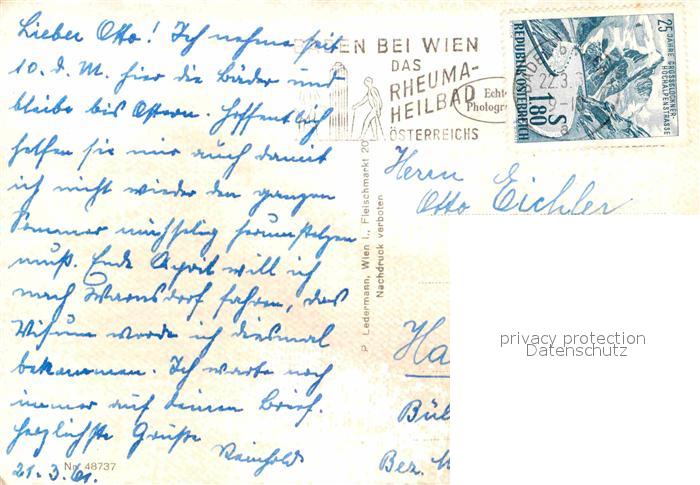 Lieber Otto! Ich nehme seit
10. d. M. hier die Bäder und
bleibe bis Ostern. Hoffentlich
helfen sie mir auch damit
ich nicht wieder den ganzen
Sommer mühselig herumstelzen
muß. Ende April will ich
nach Warnsdorf fahren, das
Visum werde ich diesmal
bekommen. Ich warte noch
immer auf deinen Brief.
Herzlichste Grüße
Reinhold
21.3.61.
Nr. 48737
BADEN BEI WIEN
DAS
RHEUMA-
HEILBAD
ÖSTERREICHS
Echt
Photogr
22.3.
a
25 JAHRE GROSSGLOCKNER-
HOCHALPENSTRASSE
S 1.80
REPUBLIK ÖSTERREICH
P. Ledermann, Wien I., Fleischmarkt 20
Nachdruck verboten
Herrn
Otto Eichler
Ha
Bül
Bez.
privacy protection
Datenschutz